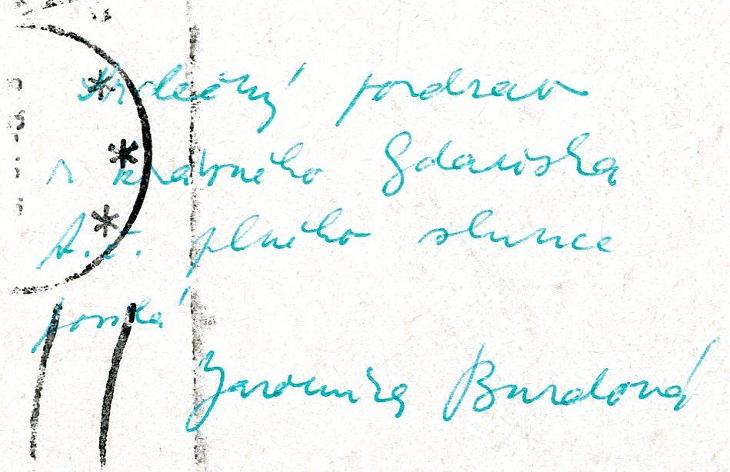 Srdečný pozdrav
z krásného Gdaňska
t.č. plného slunce
posílá
Jaromíra Burdová